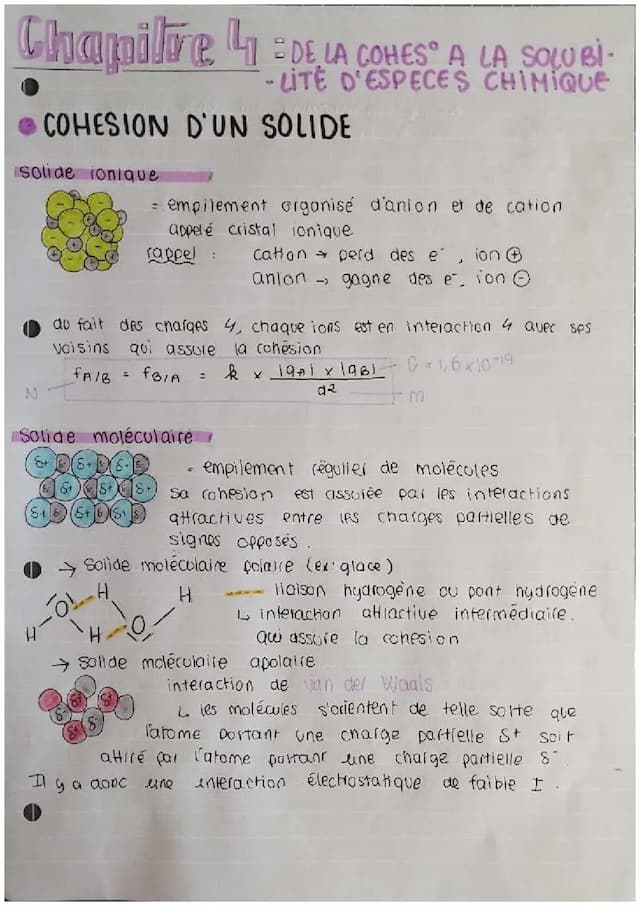 Chapitre 4 : DE LA COHES° A LA SOLUBI-
-LITÉ D'ESPECES CHIMIQUE
COHESION D'UN SOLIDE
solide ionique
= empilement organisé d'anion et de cation
appelé cristal ionique
rappel : cation → perd des e⁻, ion ⊕
anion → gagne des e⁻, ion ⊖
du fait des charges 4, chaque ions est en interaction 4 avec ses
voisins qui assure la cohésion
fA/B = fB/A = k × |qA| × |qB| / d² C = 1,6 × 10⁻¹⁹
N m
Solide moléculaire
= empilement régulier de molécules
Sa cohésion est assurée par les interactions
attractives entre les charges partielles de
signes opposés.
→ Solide moléculaire polaire (ex: glace)
H H liaison hydrogène ou pont hydrogène
O ↳ interaction attractive intermédiaire.
H H O qui assure la cohésion
→ Solide moléculaire apolaire
interaction de van der Waals
↳ les molécules s'orientent de telle sorte que
l'atome portant une charge partielle δ+ soit
attiré par l'atome portant une charge partielle δ⁻.
Il y a donc une interaction électrostatique de faible I.